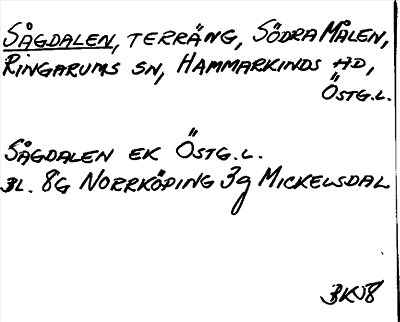 SÅGDALEN, TERRÄNG, SÖDRA MÅLEN,
RINGARUMS SN, HAMMARKINDS HD,
ÖSTG.L.
SÅGDALEN EK ÖSTG.L.
BL. 8G NORRKÖPING 3g MICKELSDAL